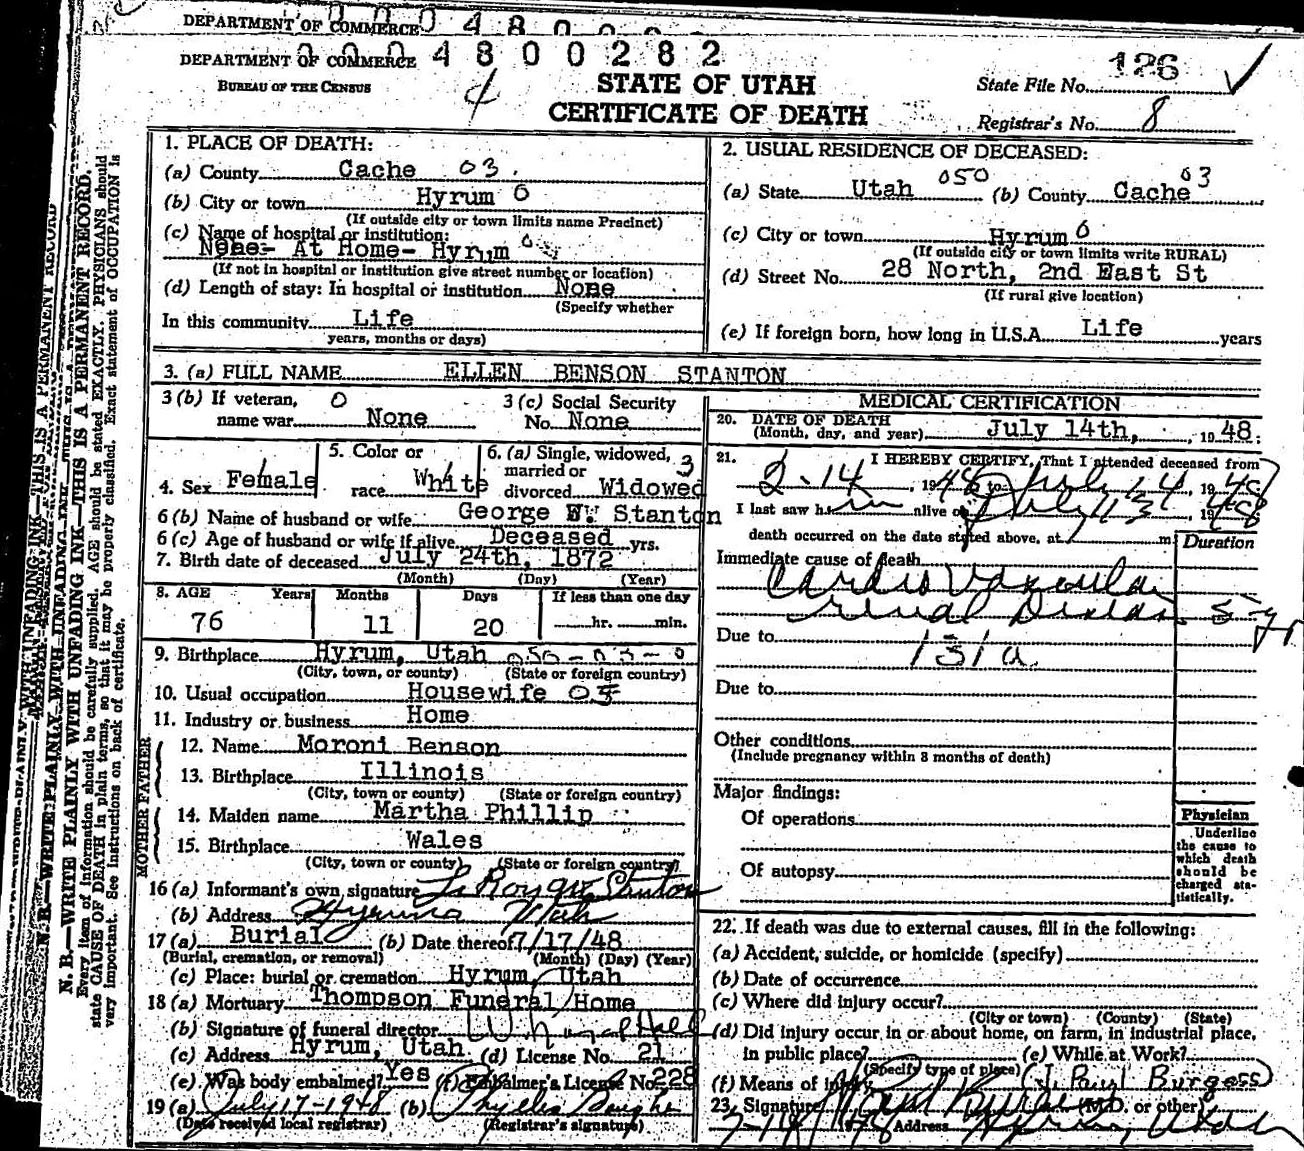 DEPARTMENT OF COMMERCE 0 4 8 0 0
DEPARTMENT OF COMMERCE 0 0 0 4 8 0 0 2 8 2
BUREAU OF THE CENSUS
STATE OF UTAH
CERTIFICATE OF DEATH
State File No. 126
Registrar's No. 8
N. B.—WRITE PLAINLY WITH UNFADING INK—THIS IS A PERMANENT RECORD.
Every item of information should be carefully supplied. AGE should be stated EXACTLY. PHYSICIANS should
state CAUSE OF DEATH in plain terms, so that it may be properly classified. Exact statement of OCCUPATION is
very important. See instructions on back of certificate.
1. PLACE OF DEATH:
(a) County Cache 03.
(b) City or town Hyrum 0
(If outside city or town limits name Precinct)
(c) Name of hospital or institution:
None- At Home- Hyrum
(If not in hospital or institution give street number or location)
(d) Length of stay: In hospital or institution None
(Specify whether
In this community Life
years, months or days)
2. USUAL RESIDENCE OF DECEASED:
(a) State Utah 050 (b) County Cache 03
(c) City or town Hyrum 0
(If outside city or town limits write RURAL)
(d) Street No. 28 North, 2nd East St
(If rural give location)
(e) If foreign born, how long in U.S.A. Life years
3. (a) FULL NAME ELLEN BENSON STANTON
3 (b) If veteran, 0
name war None
3 (c) Social Security
No. None
4. Sex Female
5. Color or
race White
6. (a) Single, widowed, 3
married or
divorced Widowed
6 (b) Name of husband or wife George W. Stanton
6 (c) Age of husband or wife if alive Deceased yrs.
7. Birth date of deceased July 24th, 1872
(Month) (Day) (Year)
8. AGE Years Months Days If less than one day
76 11 20 hr. min.
9. Birthplace Hyrum, Utah 050-03-0
(City, town, or county) (State or foreign country)
10. Usual occupation Housewife
11. Industry or business Home
FATHER
12. Name Moroni Benson
13. Birthplace Illinois
(City, town or county) (State or foreign country)
MOTHER
14. Maiden name Martha Phillip
15. Birthplace Wales
(City, town or county) (State or foreign country)
16 (a) Informant's own signature LeRoy Stanton
(b) Address Hyrum Utah
17 (a) Burial (b) Date thereof 7/17/48
(Burial, cremation, or removal) (Month) (Day) (Year)
(c) Place: burial or cremation Hyrum, Utah
18 (a) Mortuary Thompson Funeral Home
(b) Signature of funeral director Hall
(c) Address Hyrum, Utah (d) License No. 21
(e) Was body embalmed? Yes (f) Embalmer's License No. 228
19 (a) July 17-1948 (b) Phyllis
(Date received local registrar) (Registrar's signature)
MEDICAL CERTIFICATION
20. DATE OF DEATH
(Month, day, and year) July 14th, , 1948.
21. I HEREBY CERTIFY, That I attended deceased from
2-14, 1948 to July 14, 1948
I last saw h im alive on July 13, 1948
death occurred on the date stated above, at m
Duration
Immediate cause of death
Cardio Vascular
renal Disease 5 yr
Due to 131a
Due to
Other conditions
(Include pregnancy within 3 months of death)
Major findings:
Of operations
Of autopsy
Physician
Underline
the cause to
which death
should be
charged sta-
tistically.
22. If death was due to external causes, fill in the following:
(a) Accident, suicide, or homicide (specify)
(b) Date of occurrence
(c) Where did injury occur?
(City or town) (County) (State)
(d) Did injury occur in or about home, on farm, in industrial place,
in public place? (e) While at Work?
(Specify type of place)
(f) Means of injury (J. Paul Burgess)
23. Signature J Paul Burgess (M.D. or other)
7-14 1948 Address Hyrum, Utah